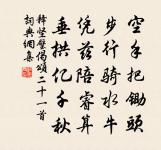 空手把鋤頭
步行騎水牛
凭茲陪睿算
垂拱亿千秋
釋坚璧偈頌二十一首
詞典網集